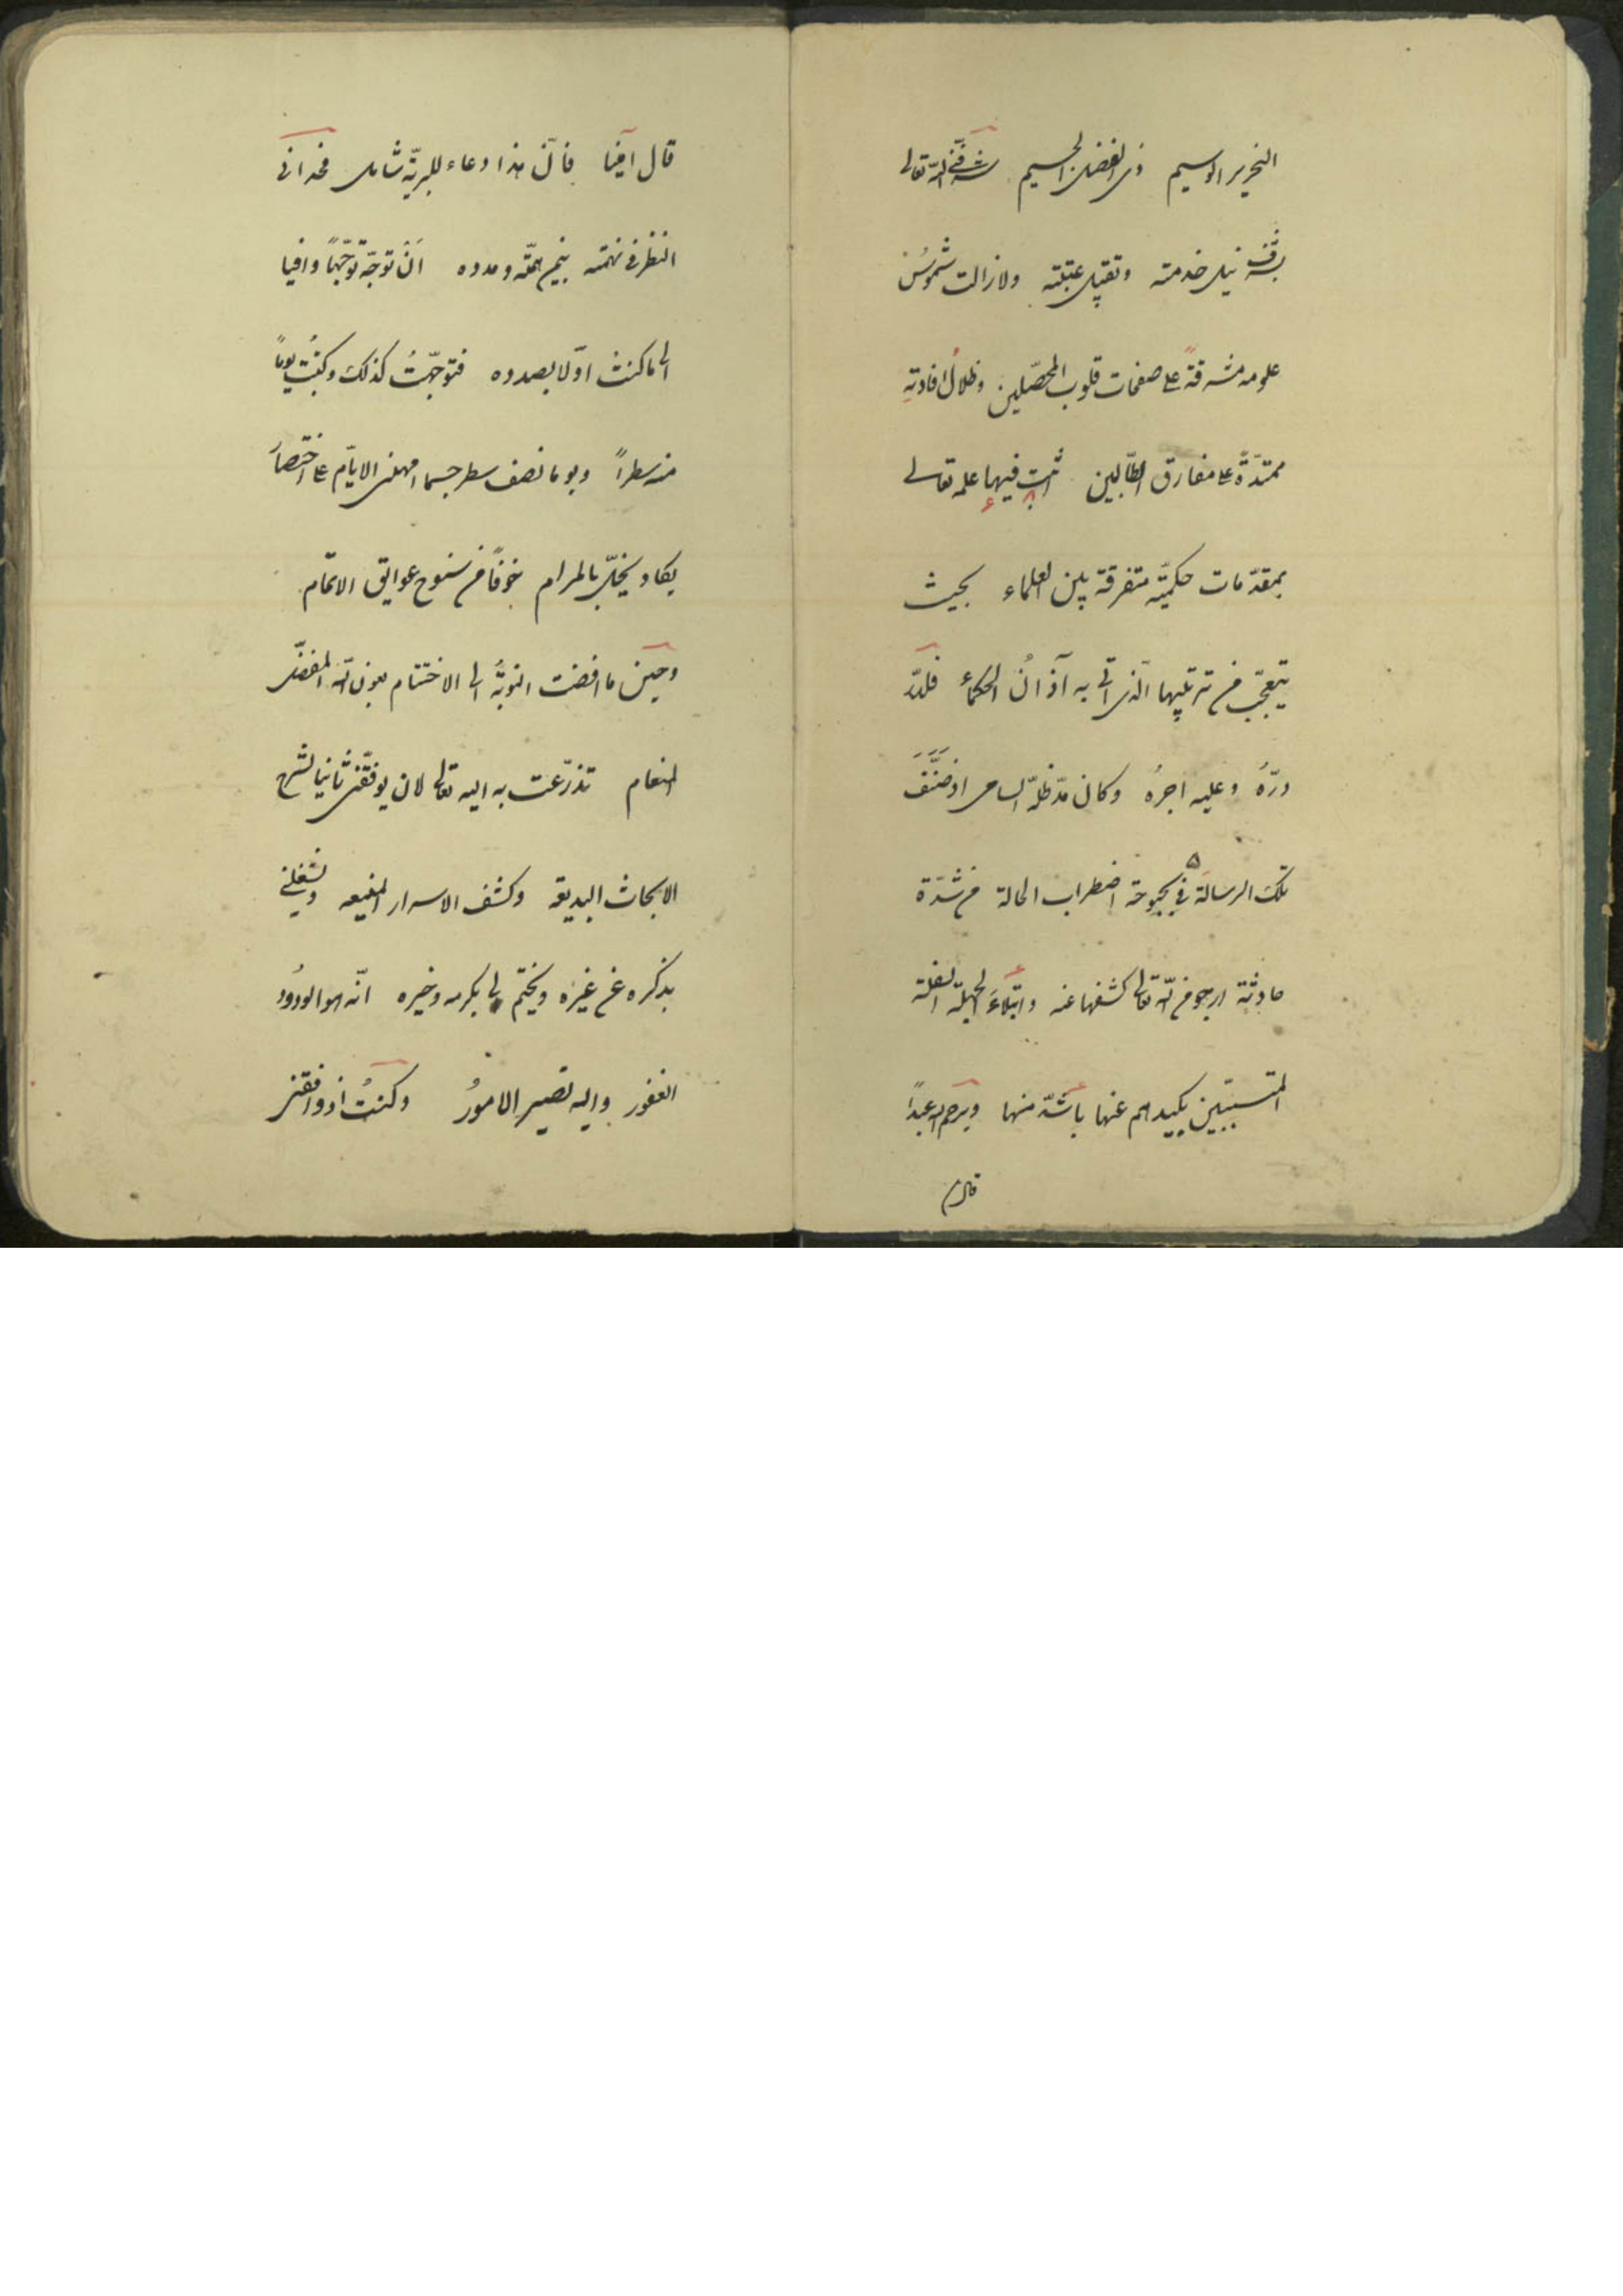 النحرير الوسيم ذى الفضل الجسيم شرّفنى اللّه تعالى
بشرف نيل خدمته وتقبيل عتبته ولا زالت شموسُ
علومه مشرقةً على صفحات قلوب المحصّلين وظلالُ افادتهِ
ممتدّةً على مفارق الطّالبين اثبت فيها علمه تعالى
بمقدّمات حكميّه متفرقة بين العلماء بحيث
يتعجّب من ترتيبها الّذى اتى به آذانُ الحكماء فللّه
درّهُ وعليه اجرهُ وكان مدّ ظلّه السامى اذ صَنَّفَ
تلك الرسالة فى بحبوحة اضطراب الحالة من شدّة
حادثة ارجو من اللّه تعالى كشفها عنه وابتلاءَ الجهلة السفلة
المتسبّبين بكيدهم عنها باشدّ منها ويرحم اللّه عبدًا
قال
قال آمينا فانّ هذا دعاء للبريّة شامل فحدانى
النظر فى نهمته بيُمن همّته ومدده اَنْ توجّه توجّهًا وافيا
الى ما كنت اوّلا بصدده فتوجّهتُ كذلك وكتبتُ يومًا
منه سطراً ويوما نصف سطر حسبما امهلنى الايّام على اختصارَ
يكاد يخلّ بالمرام خوفًا من سنوح عوايق الاتمام
وحين ما افضت النوبَةُ الى الاختتام بعون اللّه المفضّل
المنعام تذرّعت به اليه تعالى لان يوفّقنى ثانيا لشرح
الابحاث البديعة وكشف الاسرار المنيعه ويشغلنى
بذكره عن غيره ويختم لى بكرمه وخيره انّه هو الودُود
الغفور واليه تصير الامورُ وكنتُ اذ وافقنى